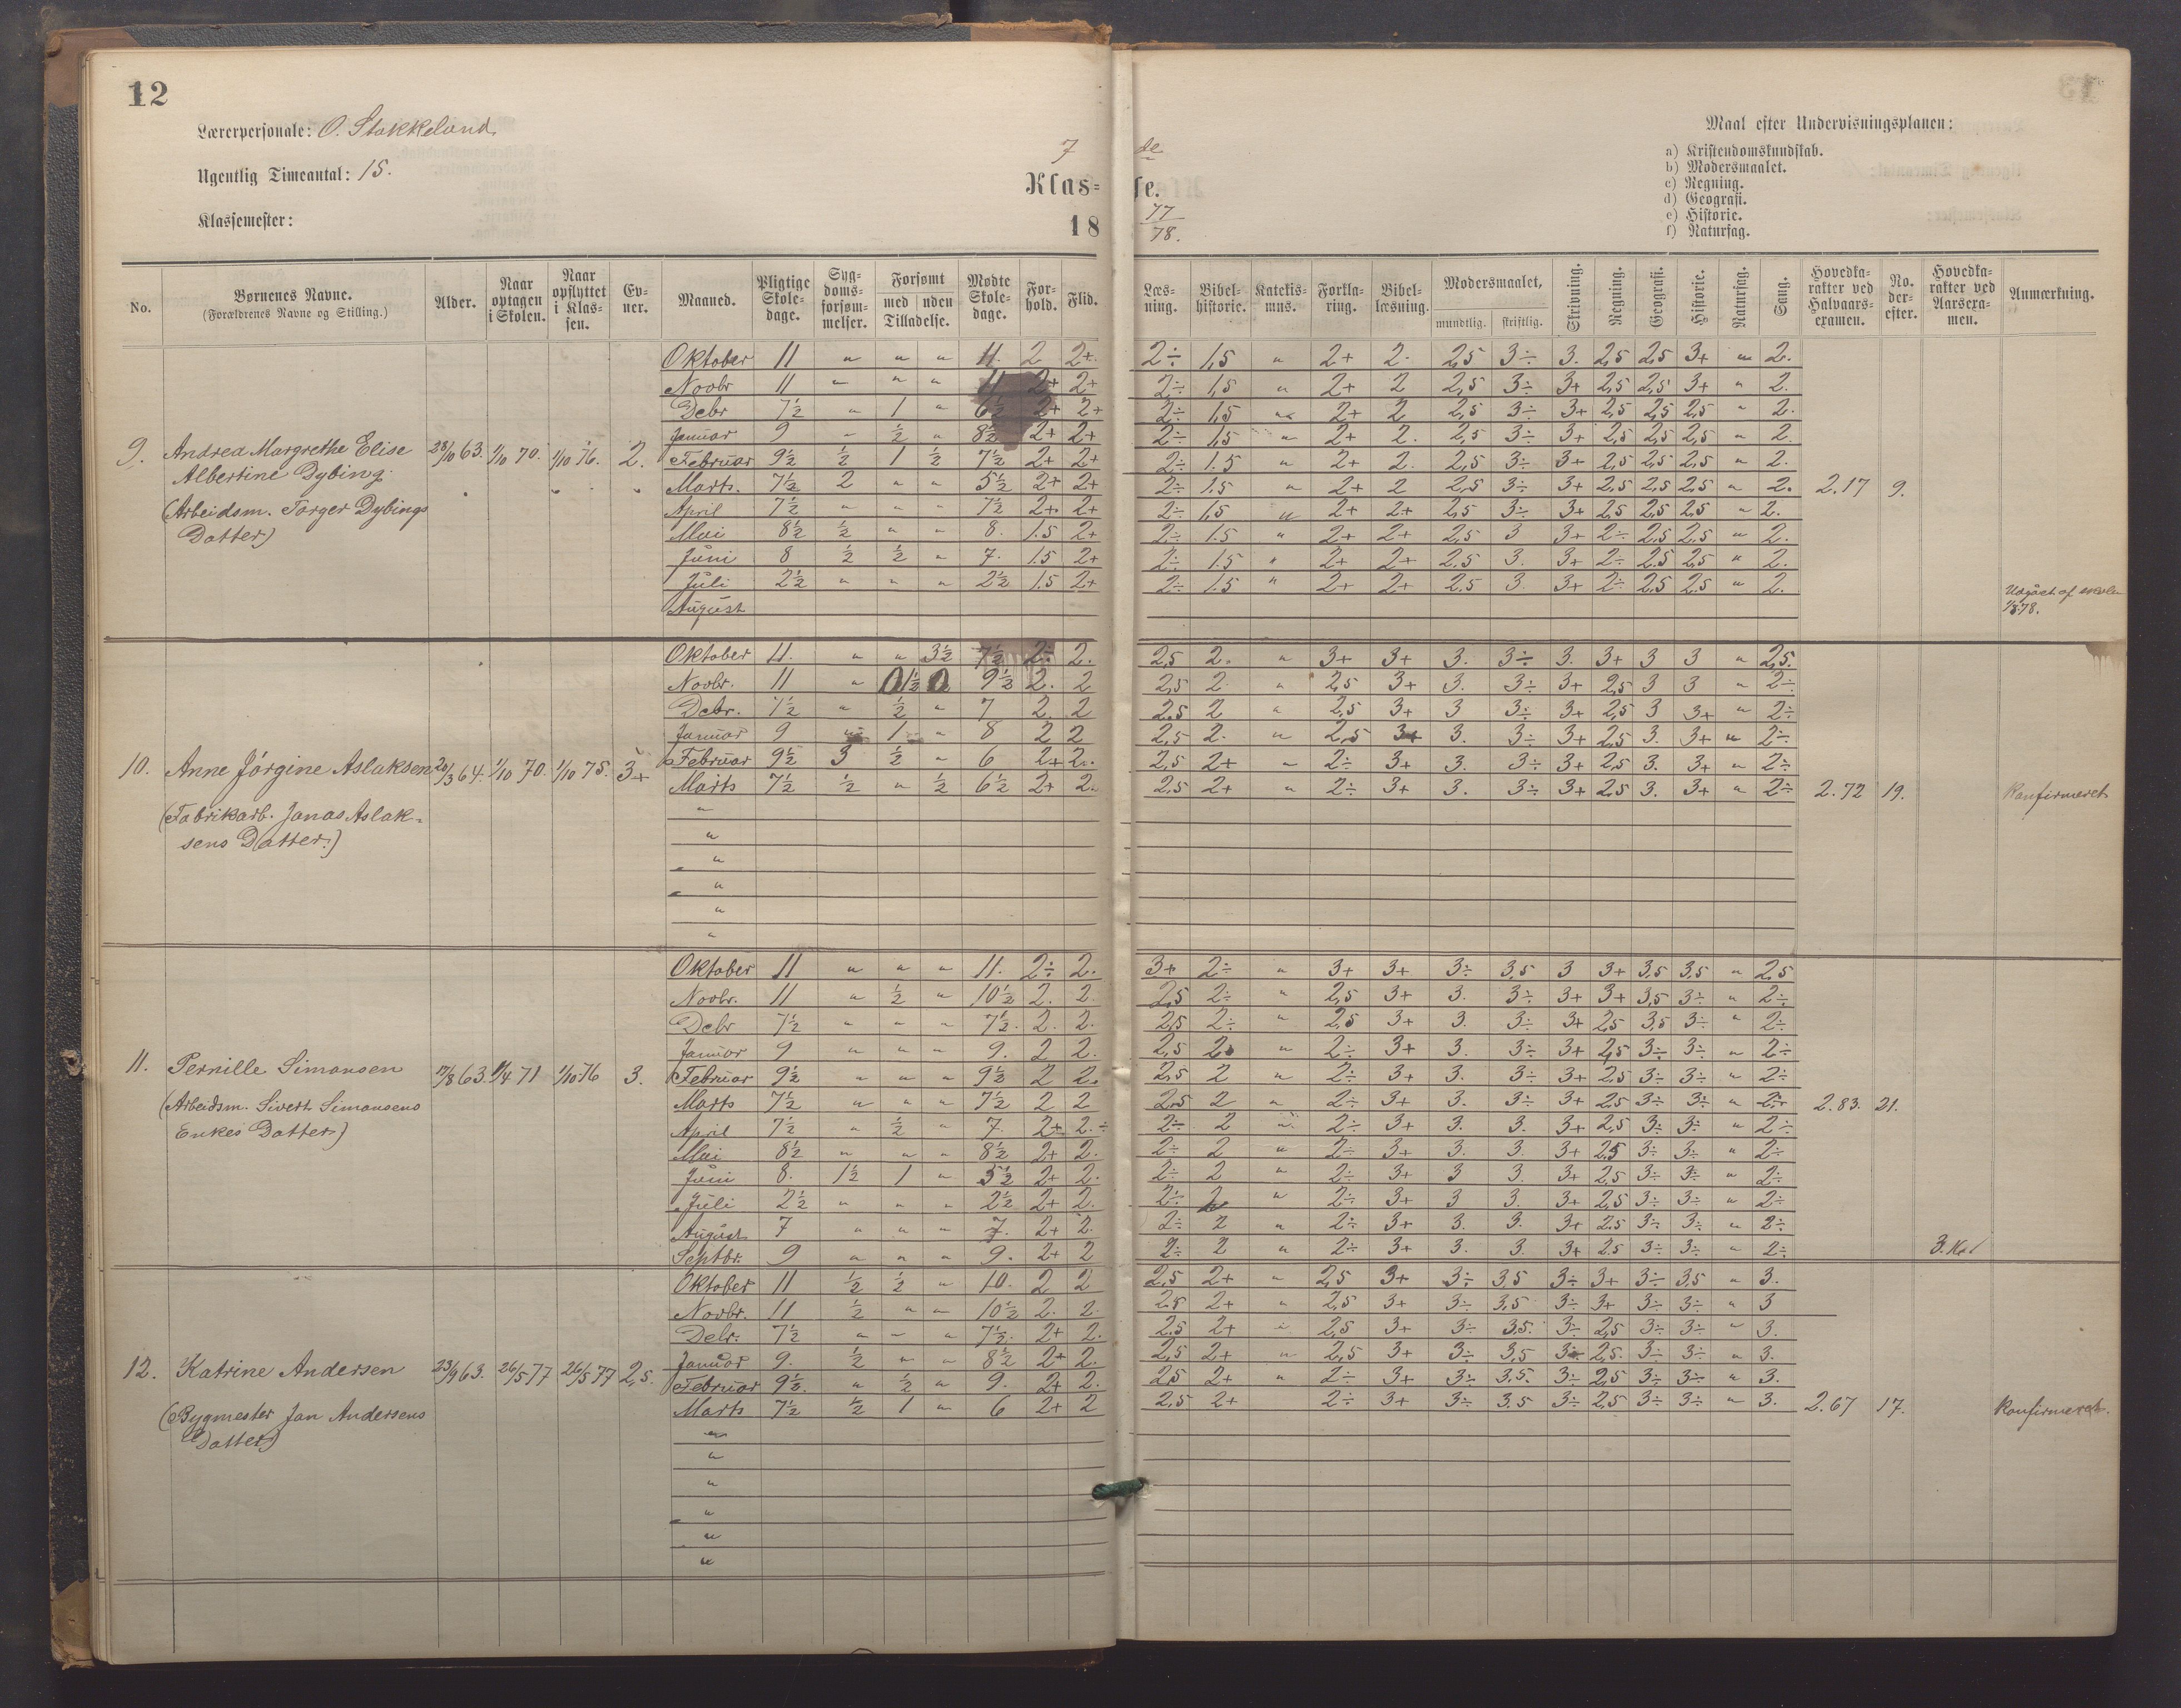 12
Lærerpersonale: O. Stokkeland
Ugentlig Timeantal: 15.
Klassemester:
7 de
Klas= se.
18 77/78.
Maal efter Undervisningsplanen:
a) Kristendomskundskab.
b) Modersmaalet.
c) Regning.
d) Geografi.
e) Historie.
f) Naturfag.
No. Børnenes Navne. (Forældrenes Navne og Stilling.) Alder. Naar optagen i Skolen. Naar opflyttet i Klassen. Evner. Maaned. Pligtige Skoledage. Sygdomsforsømmelser. Forsømt med uden Tilladelse. Mødte Skoledage. Forhold. Flid. Læsning. Bibelhistorie. Katekismus. Forklaring. Bibellæsning. Modersmaalet, mundtlig. skriftlig. Skrivning. Regning. Geografi. Historie. Naturfag. Sang. Hovedkarakter ved Halvaarsexamen. No. derefter. Hovedkarakter ved Aarsexamen. Anmærkning.
Oktober 11 " " " 11. 2 2+. 2÷ 1,5 " 2+ 2. 2,5 3÷ 3. 2,5 2,5 3+ " 2.
Novbr 11 " " " 11 2+ 2+ 2÷ 1,5 " 2+ 2 2,5 3÷ 3+ 2,5 2,5 3+ " 2.
Debr 7½ " 1 " 6½ 2+ 2+ 2÷ 1,5 " 2+ 2 2,5 3÷ 3+ 2,5 2,5 2,5 " 2.
Januar 9 " ½ " 8½ 2+ 2+ 2÷ 1,5 " 2+ 2. 2,5 3÷ 3+ 2,5 2,5 2,5 " 2.
9. Andrea Margrethe Elise 28/10 63. 1/10 70. 1/10 76. 2. Februar 9½ ½ 1 ½ 7½ 2+ 2+ 2÷ 1.5 " 2+ 2. 2,5 3÷ 3+ 2,5 2,5 2,5 " 2.
Albertine Dybing. Marts. 7½ 2 " " 5½ 2+ 2+ 2÷ 1.5 " 2+ 2 2,5 3÷ 3+ 2,5 2,5 2,5 " 2. 2.17 9.
(Arbeidsm. Torger Dybings April 7½ " " " 7½ 2+ 2+ 2÷ 1,5 " 2+ 2+ 2,5 3÷ 3+ 2,5 2,5 2,5 " 2.
Datter) Mai 8½ ½ " " 8. 1.5 2+ 2÷ 1.5 " 2+ 2+ 2,5 3 3+ 2÷ 2,5 2,5 " 2.
Juni 8 ½ ½ " 7. 1.5 2+ 2÷ 1.5 " 2+ 2+ 2.5 3. 3+ 2÷ 2.5 2,5 " 2.
Juli 2½ " " " 2½ 1.5 2+ 2÷ 1.5 " 2+ 2+ 2.5 3 3+ 2÷ 2,5 2.5 " 2.
August Udgået af skolen
1/8 78.
Oktober 11. " " 3½ 7½ 2÷ 2. 2,5 2. " 3+ 3+ 3. 3÷ 3. 3+ 3 3 " 2,5.
Novbr. 11 " 1½ 9½ 2. 2 2,5 2. " 2,5 3+ 3. 3÷ 3+ 2,5 3 3 " 2÷
Debr. 7½ " ½ " 7 2. 2 2.5 2 " 2,5 3+ 3 3÷ 3+ 2,5 3 3+ " 2÷
Januar 9 " 1 " 8 2 2 2,5 2. " 2,5 3+ 3. 3÷ 3+ 2,5 3. 3+ " 2÷
10. Anne Jørgine Aslaksen 20/3 64. 1/10 70. 1/10 75. 3+ Februar 9½ 3 ½ " 6 2+ 2. 2,5 2+ " 2÷ 3+ 3. 3÷ 3+ 2,5 3. 3+ " 2÷
Marts 7½ ½ " ½ 6½ 2+ 2. 2,5 2+ " 2÷ 3+ 3. 3÷ 3+ 2,5 3. 3+ " 2÷ 2.72 19. Konfirmeret
(Fabrikarb. Jonas Aslak= "
sens Datter.) "
"
"
"
"
Oktober 11 " " " 11. 2÷ 2. 3+ 2÷ " 3+ 3+ 3÷ 3,5 3 3+ 3,5 3,5 " 2,5
Novbr. 11 " ½ " 10½ 2. 2. 2,5 2÷ " 2,5 3+ 3. 3÷ 3+ 3+ 3,5 3÷ " 2÷
Debr 7½ " " " 7½. 2. 2. 2,5 2÷ " 2,5 3+ 3. 3÷ 3+ 2,5 3,5 3÷ " 2÷
Januar 9 " " " 9. 2 2. 2,5 2. " 2÷ 3+ 3. 3÷ 3+ 2,5 3÷ 3÷ " 2÷
11. Pernille Simonsen 17/8 63. 1/4 71 1/10 76 3. Februar 9½ " " " 9½ 2 2. 2,5 2 " 2÷ 3+ 3. 3÷ 3+ 2.5 3÷ 3÷ " 2÷
(Arbeidsm. Sivert Simonsens Marts 7½ " " " 7½ 2 2 2,5 2 " 2÷ 3+ 3. 3÷ 3+ 2,5 3÷ 3÷ " 2÷ 2.83. 21.
Enkes Datter) April 7½ " ½ " 7. 2+ 2.÷ 2÷ 2 " 2÷ 3+ 3. 3. 3+ 2,5 3÷ 3÷ " 2÷
Mai 8½ " " " 8½ 2+ 2. 2÷ 2 " 2÷ 3+ 3. 3. 3+ 2,5 3÷ 3÷ " 2÷
Juni 8. 1½ 1 " 5½ 2+ 2. 2÷ 2 " 2÷ 3+ 3 3. 3+ 2,5 3÷ 3÷ " 2÷
Juli 2½ " " " 2½ 2+ 2. 2÷ 2 " 2÷ 3+ 3 3. 3+ 2,5 3÷ 3÷ " 2÷
August 7 " " " 7. 2+ 2. 2÷ 2 " 2÷ 3+ 3. 3. 3+ 2.5 3÷ 3÷ " 2÷
Septbr. 9 " " " 9. 2+ 2 2÷ 2 " 2÷ 3+ 3. 3. 3+ 2.5 3÷ 3÷ " 2÷ 3.
Oktober 11 ½ ½ " 10. 2 2 2,5 2+ " 2,5 3+ 3÷ 3,5 3÷ 3+ 3÷ 3,5 " 3.
Novbr. 11 ½ " " 10½ 2. 2. 2.5 2+ " 2,5 3+ 3÷ 3,5 3÷ 3+ 3÷ 3÷ " 3
Debr. 7½ " " " 7½. 2+ 2. 2.5 2+ " 2,5 3+ 3÷ 3,5. 3÷ 2,5 3÷ 3÷ " 3.
12. Katrine Andersen 23/9 63. 26/5 77 26/5 77 2,5. Januar 9. ½ " " 8½ 2+ 2. 2,5 2+ " 2,5 3+ 3÷ 3,5 3÷ 2,5. 3÷ 3÷ " 3.
Februar 9½. " ½ " 9. 2+ 2. 2,5 2+ " 2÷ 3+ 3÷ 3,5. 3÷ 2,5 3÷ 3÷ " 3.
(Bygmester Jan Andersens Marts 7½ ½ 1 " 6 2+ 2 2,5 2+ 2÷ 3+ 3÷ 3.5 3÷ 2,5 3÷ 3÷ " 3. 2.67 17. Konfirmeret.
Datter) "
"
"
"
"
"